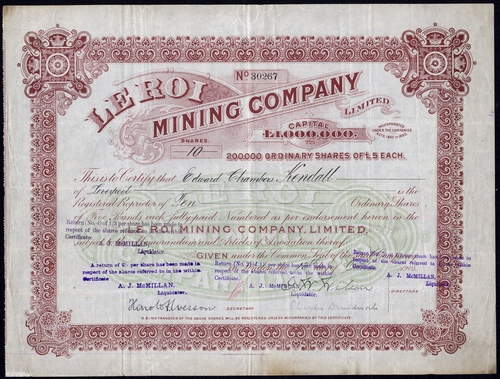 No 30267
LE ROI
MINING COMPANY
LIMITED
CAPITAL
£1,000,000.
INCORPORATED
UNDER THE COMPANIES
ACTS 1862 TO 1898.
SHARES.
10
200,000 ORDINARY SHARES OF £5 EACH.
This is to Certify that Edward Chambers Kendall
of Liverpool is the
Registered Proprietor of Ten Ordinary Shares
of Five Pounds each fully paid. Numbered as per endorsement hereon in the
LE ROI MINING COMPANY, LIMITED,
subject to the Memorandum and Articles of Association thereof.
GIVEN under the Common Seal of the
respect of the shares referred to in the within
Certificate
A. J. McMILLAN,
Liquidator.
A return of per share has been made in
respect of the shares referred to in the within
Certificate
A. J. McMILLAN,
Liquidator.
respect of the shares referred to in the within
Certificate
Liquidator.
per share has been made in
respect of the shares referred to in the within
Certificate
A. J. McMILLAN,
Liquidator.
DIRECTORS.
SECRETARY
N.B. NO TRANSFER OF THE ABOVE SHARES WILL BE REGISTERED UNLESS ACCOMPANIED BY THIS CERTIFICATE.